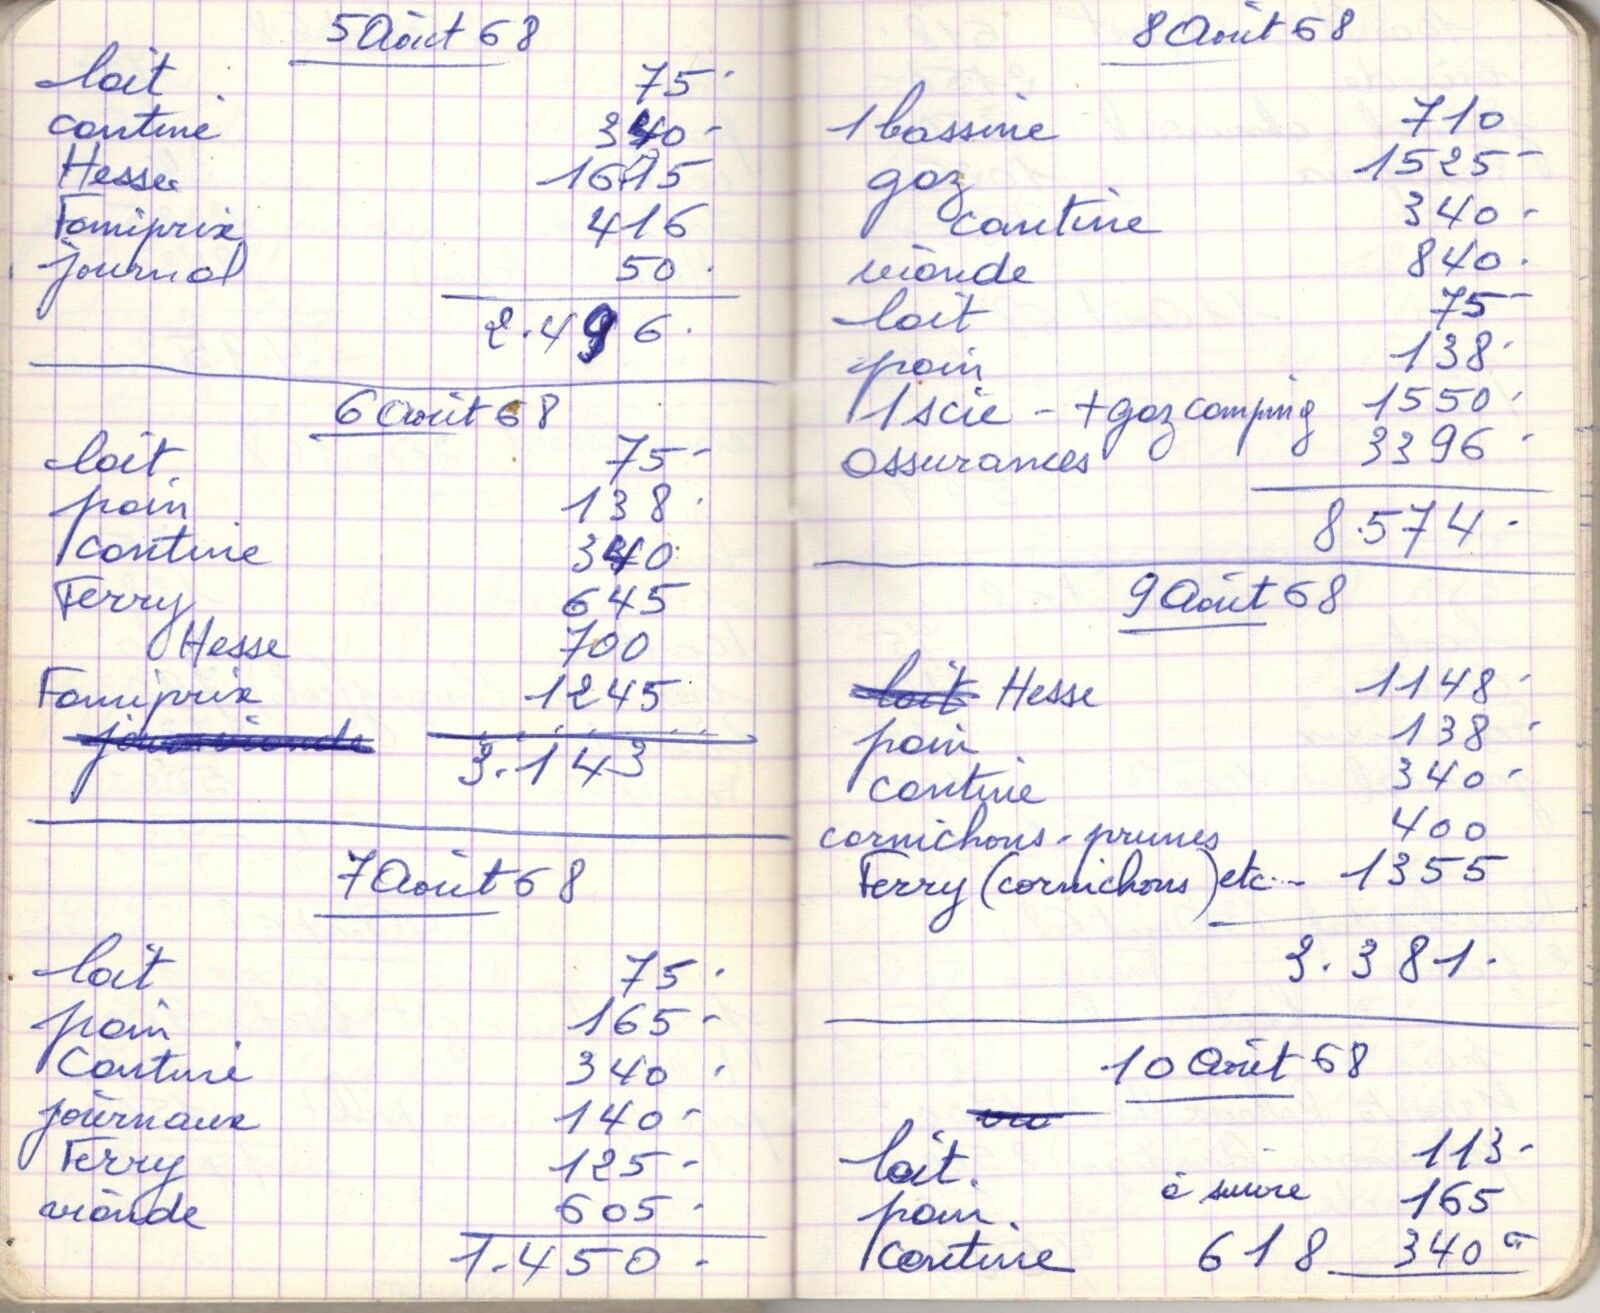 5 Août 68
lait 75-
cantine 340-
Hesse 1615
Famiprix 416
journal 50.
2.496.
6 Août 68
lait 75-
pain 138.
cantine 340
Ferry 645
Hesse 700
Famiprix 1245
3.143
7 Août 68
lait 75.
pain 165-
Cantine 340.
journaux 140-
Ferry 125-
viande 605.
1.450.
8 Août 68
1 bassine 710
gaz 1525-
cantine 340.
viande 840.
lait 75-
pain 138.
1 scie - + gaz camping 1550.
assurances 3396.
8.574.
9 Août 68
lait Hesse 1148.
pain 138.
cantine 340-
cornichons - prunes 400
Ferry (cornichons) etc... 1355
3.381.
10 Août 68
lait. 113-
pain. à suivre 165
cantine 618 340